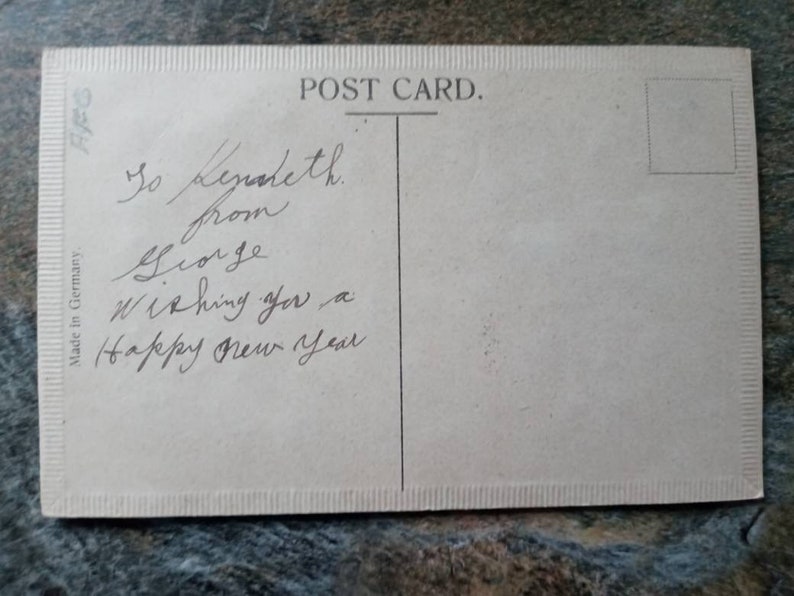 POST CARD.
To Kenneth.
from
George
Wishing you a
Happy New Year
Made in Germany.